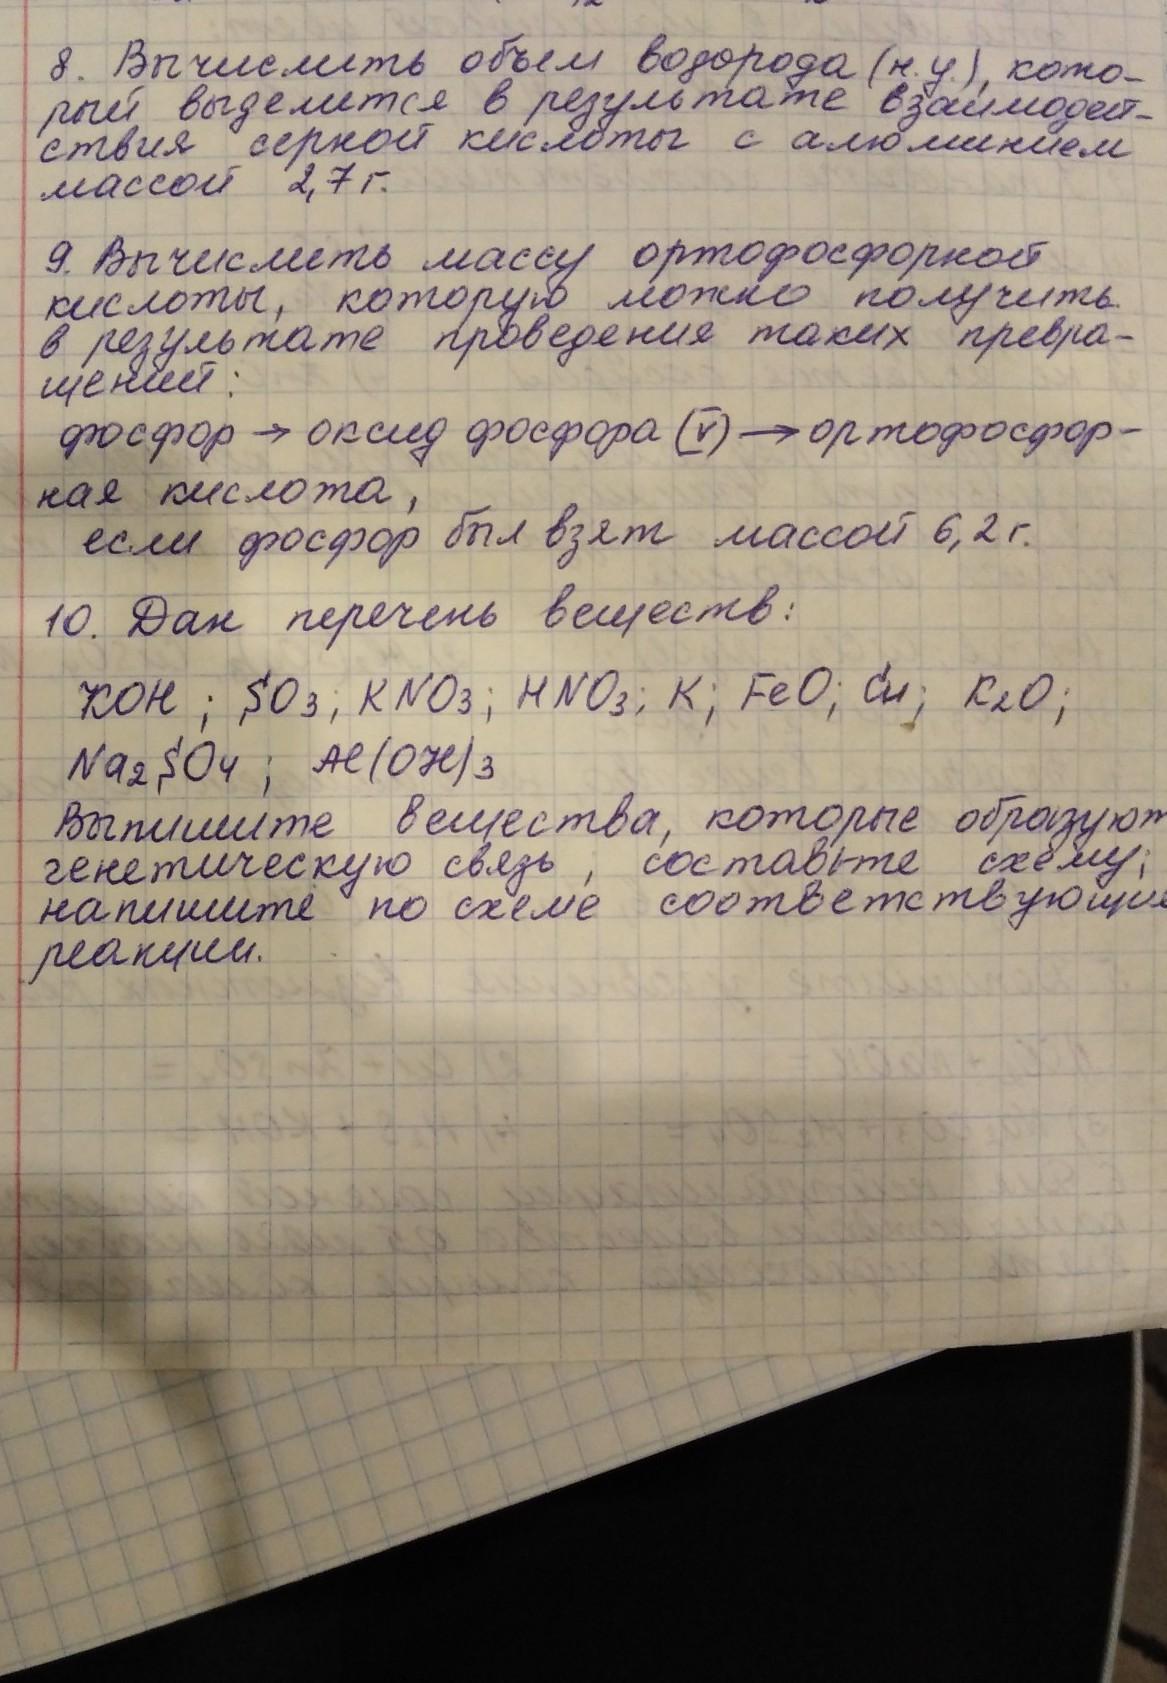 8. Вычислить объем водорода (н.у.), кото-
рый выделится в результате взаимодей-
ствия серной кислоты с алюминием
массой 2,7 г.
9. Вычислить массу ортофосфорной
кислоты, которую можно получить
в результате проведения таких превра-
щений:
фосфор → оксид фосфора (V) → ортофосфор-
ная кислота,
если фосфор был взят массой 6,2 г.
10. Дан перечень веществ:
KOH ; SO3; KNO3; HNO3; K; FeO; Cu; K2O;
Na2SO4 ; Al(OH)3
Выпишите вещества, которые образуют
генетическую связь, составьте схему;
напишите по схеме соответствующие
реакции.